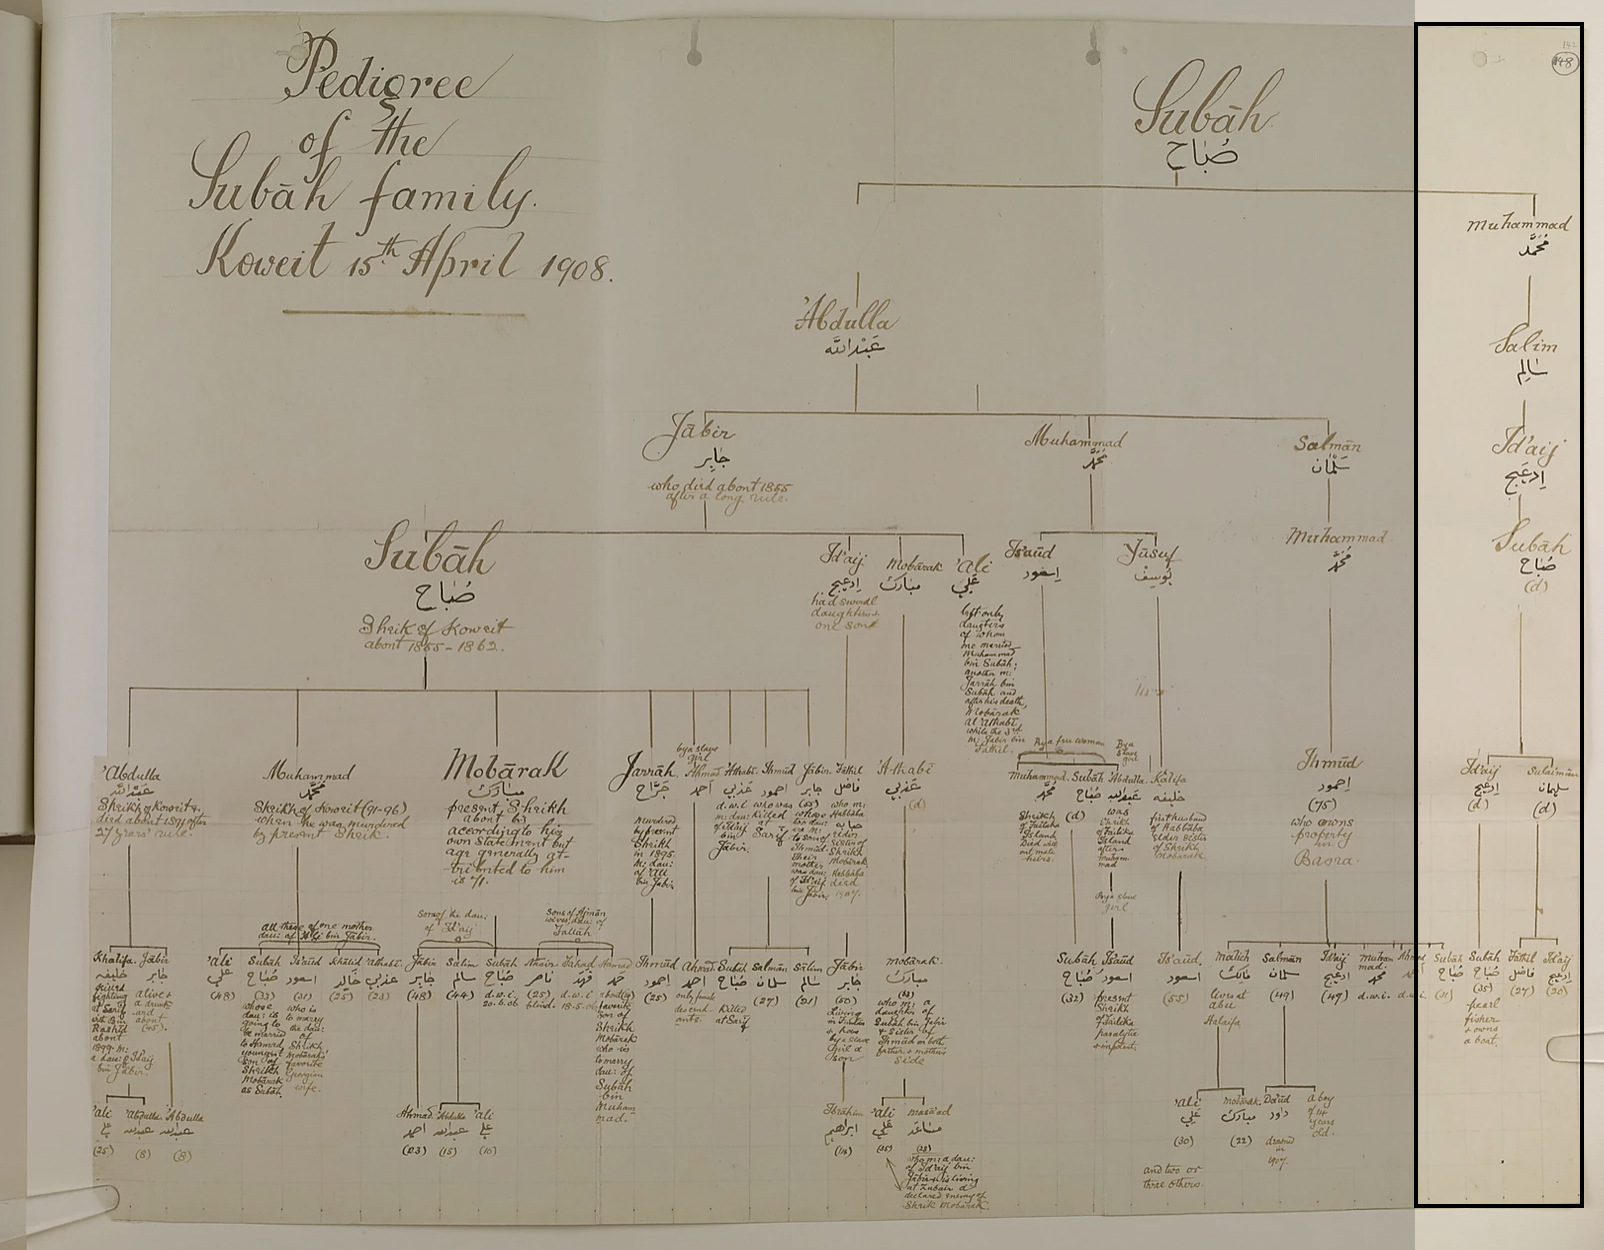 Pedigree
of the
Subāh family.
Koweit 15th April 1908.
148
Subāh
صُبَاح
Muhammad
مُحَمَّد
Salim
سَالِم
Id'aij
اِدعَيج
Subāh
صُبَاح
(d)
'Abdulla
عَبْدالله
Jābir
جَابِر
who died about 1855
after a long rule.
Muhammad
مُحَمَّد
Salmān
سَلْمَان
Muhammad
مُحَمَّد
Subāh
صُبَاح
Sheik of Koweit
about 1855-1862.
Id'aij
اِدعَيج
had several
daughters &
one son
Mobārak
مبارك
'Ali
عَلِي
left only
daughters
of whom
one married
Muhammad
bin Subāh;
another m:
Jarrāh bin
Subāh and
after his death,
Mobārak
al 'Athabi,
while the 3rd
m: Jabir bin
Fathil.
Is'aūd
اِسعود
Yūsuf
يُوسِفْ
'Abdulla
عبدالله
Sheikh of Koweit &
died about 1891 after
27 years' rule.
Muhammad
مُحَمَّد
Sheikh of Koweit (91-96)
when he was murdered
by present Sheik.
Mobārak
مبارك
present Sheikh
about 63
according to his
own statement but
age generally at-
tributed to him
is 71.
Jarrāh
جَرَّاح
murdered
by present
Sheikh
in 1895
m: dau:
of 'Ali
bin Jabir
by a slave
girl
Ahmad
احمد
'Athabi
عذبي
d.w.i.
m: dau:
of Id'aij
bin
Jābir.
Ihmūd
احمود
who was
killed
at
Sarif
Jābir
جابر
(65)
Fathil
فاضل
who m:
Habbāba
sister of
Sheikh
Mobārak
Habbāba
died
1907.
'Athabi
عذبي
(d)
By a free woman
By a
slave
girl
Muhammad
محمد
Sheikh
of Failaka
Island
Died with
out male
heirs.
Subāh
صُبَاح
(d)
Abdulla
عبدالله
was
Sheikh
of Failika
Island
after
Muham
mad
By a slave
girl
Kalifa
خليفه
first husband
of Habbāba
elder sister
of Sheikh
Mobārak
Ihmūd
احمود
(75)
who owns
property
in
Basra.
Id'aij
اِدعيج
(d)
Sulaimān
سليمان
(d)
All these of one mother
dau: of 'Ali bin Jābir.
Sons of the dau:
of Id'aij
Sons of Ajmān
wives, dau: of
Fallāh
Khalifa
خليفه
killed
fighting
at Sarif
with Bin
Rashid
about
1899. m:
a dau: of Id'aij
bin Jābir.
Jābir
جابر
alive &
a drunk
ard
about
(45).
'Ali
علي
(48)
Subāh
صُبَاح
(33)
whose
dau: is
going to
be married
to Hamad
youngest
son of
Sheikh
Mobārak
as Subāh
Is'aūd
اسعود
(31)
who is
to marry
the dau:
of
Sheikh
Mobārak's
favorite
Georgian
wife.
Khalid
خالد
(25)
'Athabi
عذبي
(23)
Jābir
جابر
(48)
Salim
سالم
(44)
Subāh
صُبَاح
d.w.i.
20.6.06
Nasir
ناصر
(25)
blind.
Fahad
فهد
d.w.i
18-5-06
Hamad
حمد
about (14)
favorite
son of
Sheikh
Mobārak
who is
to marry
dau: of
Subāh
bin
Muham
mad.
Ihmūd
احمود
(25)
Ahmad
احمد
only female
descend-
ants.
Subāh
صباح
Killed
at Sarif
Salmān
سلمان
(27)
Salim
سالم
(21)
Jābir
جابر
(50)
living
in Failaka
& has
by a slave
girl a
son
mobārak
مبارك
who m: a
daughter of
Subāh bin Jābir
& sister of
Ihmūd on both
father & mothers
side
Subāh
صُبَاح
(32)
Is'aūd
اسعود
present
Sheikh
of Failika
paralytic
& impotent.
Is'aūd
اسعود
(55)
Malich
مالك
lives at
Abu
Halaifa
Salmān
سلمان
(49)
Id'aij
ادعيج
(47)
Muham
mad
محمد
d.w.i.
Ahmad
d.w.i.
Subāh
صباح
(31)
Subāh
صُبَاح
(35)
pearl
fisher
& owns
a boat.
Fāthil
فاضل
(27)
Id'aij
ادعيج
(20)
'Ali
علي
(25)
'Abdulla
عبدالله
(8)
'Abdulla
عبدالله
(8)
Ahmad
احمد
(23)
Abdulla
عبدالله
(15)
'Ali
علي
(10)
Ibrahim
ابراهيم
(14)
'Ali
علي
(25)
masā'ad
مساعد
(22)
who m: a dau:
of Id'aij bin
Jābir & is living
at Zubair a
declared enemy of
Sheik Mobārak.
'Ali
علي
(30)
and two or
three others.
mobārak
مبارك
(22)
Da'ūd
داود
drowned
in
1907.
A boy
of 14
years
old.